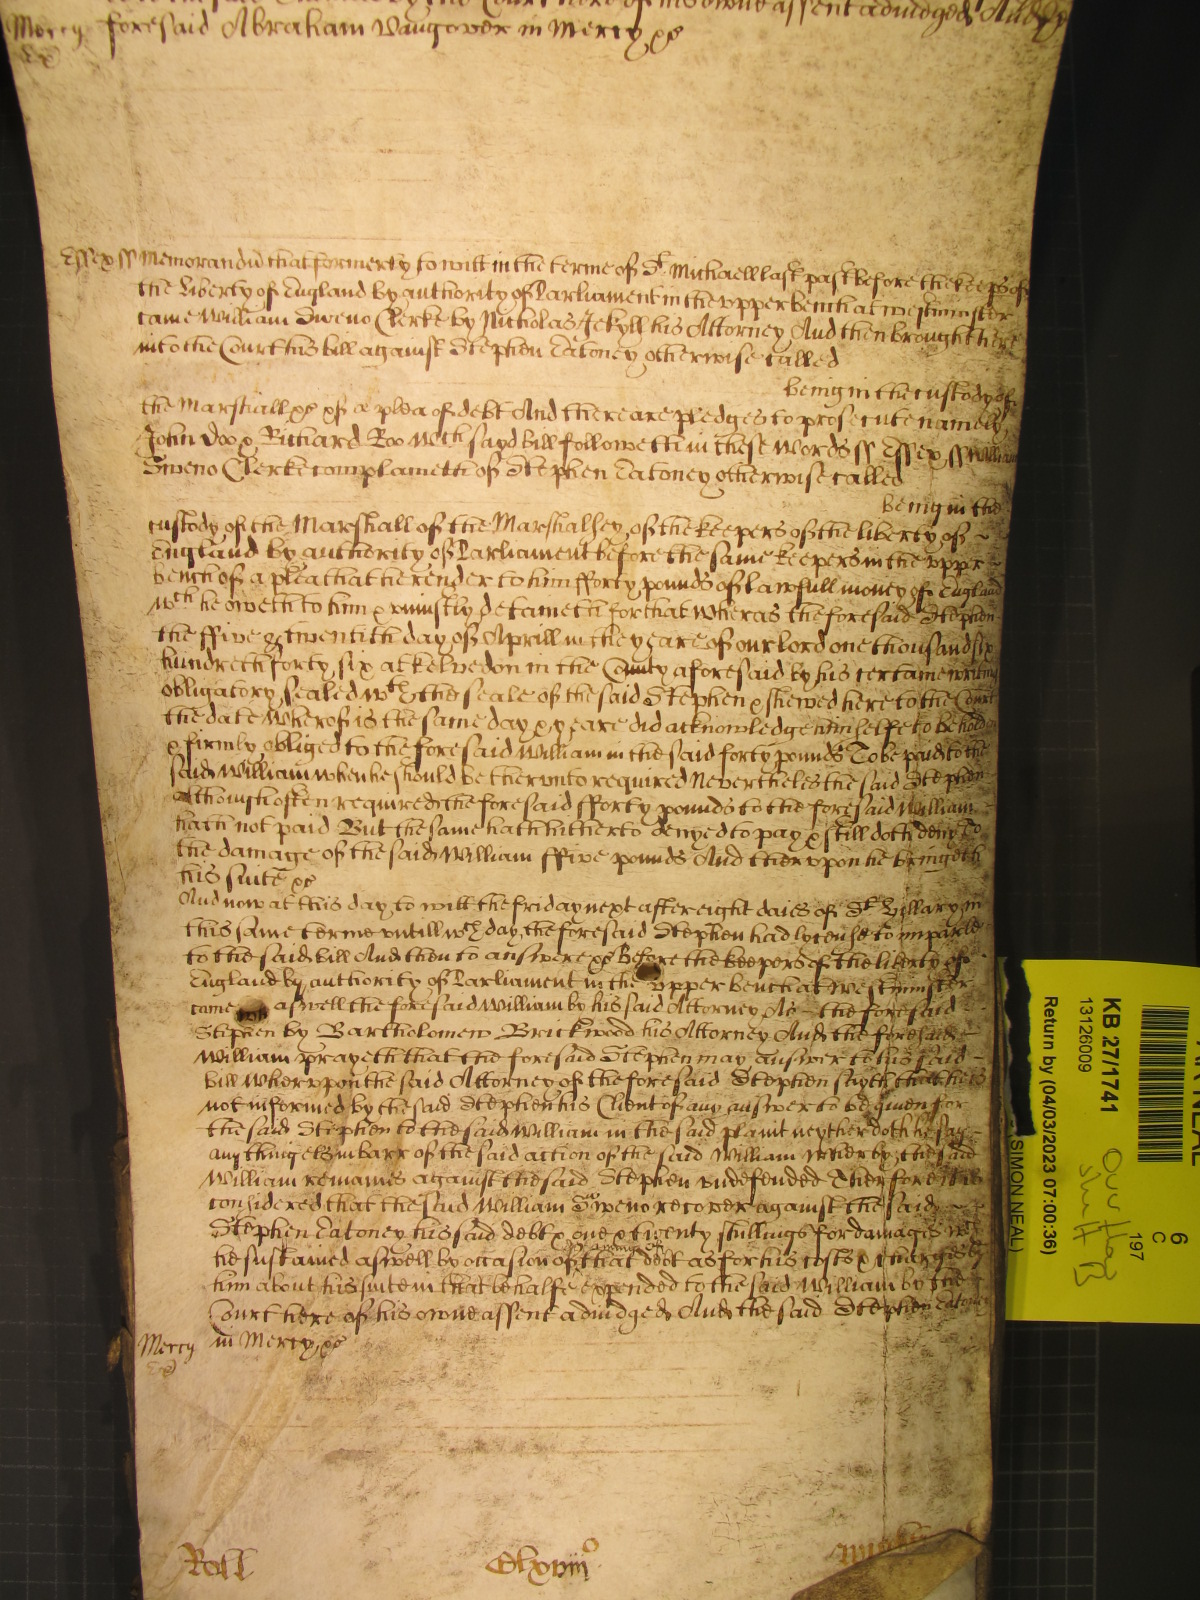 Court here of his owne assent adiudged And the
Mercy foresaid Abraham Vangover in Mercy &c
Essex ss Memorandum that formerly to witt in the terme of St Michaell last past before the keepers of
the Liberty of England by authority of Parliament in the upper bench at westminster
came William Sweno Clerke by Nicholas Jekyll his Attorney And then brought here
into the Court his bill against Stephen Catoney otherwise called
being in the custody of
the Marshall &c of a plea of debt And there are pledges to prosecute namely
John Doo & Richard Roo wch sayd bill followeth in these words ss Essex ss William
Sweno Clerke complaineth of Stephen Catoney otherwise called
being in the
custody of the Marshall of the Marshalsey of the keepers of the liberty of
England by authority of Parliament before the same keepers in the vppr
bench of a plea that he render to him fforty pounds of lawfull money of England
wch he oweth to him & uniustly detaineth for that wheras the foresaid Stephen
the ffive & twentith day of Aprill in the yeare of our lord one thousand six
hundreth forty six at kelvedon in the County aforesaid by his certaine writing
obligatory sealed wth the seale of the said Stephen & shewed here to the Court
the date wherof is the same day & yeare did acknowledge himselfe to be holden
& firmly obliged to the foresaid William in the said forty pounds To be paid to the
said William when he should be therunto required Neverthelesthe said Stephen
although often required the foresaid fforty pounds to the foresaid William
hath not paid But the same hath hitherto denyed to pay & still doth deny To
the damage of the said William ffive pounds And thervpon he bringeth
his suite &c
And now at this day to witt the friday next after eight daies of St Hillary in
this same terme untill wch day the foresaid Stephen had lycense to imparle
to the said bill And then to answere &c Before the keepers of the liberty of
England by authority of Parliament in the vpper bench at westminster
came aswell the foresaid William by his said Attorney As the foresaid
Stephen by Bartholomew Brickwood his Attorney And the foresaid
William prayeth that the foresaid Stephen may answer to his said
bill Whervpon the said Attorney of the foresaid Stephen sayth that hee is
not informed by the said Stephen his Client of any answer to be given for
the said Stephen to the said William in the said plaint neyther doth he say
any thing els in barr of the said action of the said William Wherby the said
William remaines against the said Stephen undefended Therfore it is
considered that the said William Sweno recover against the said
Stephen Catoney his said debt & one & twenty shillings for damages wch
he sustained aswell by occasion of that debt as for his costs & charges by
him about his suite in that behalfe expended to the said William by the
Court here of his owne assent adiudged And the said Stephen Catoney
Mercy in Mercy &c
Roll Clxviijo
KB 27/1741
13126009
Return by (04/03/2023 07:00:36)
SIMON NEAL)
6
C
197